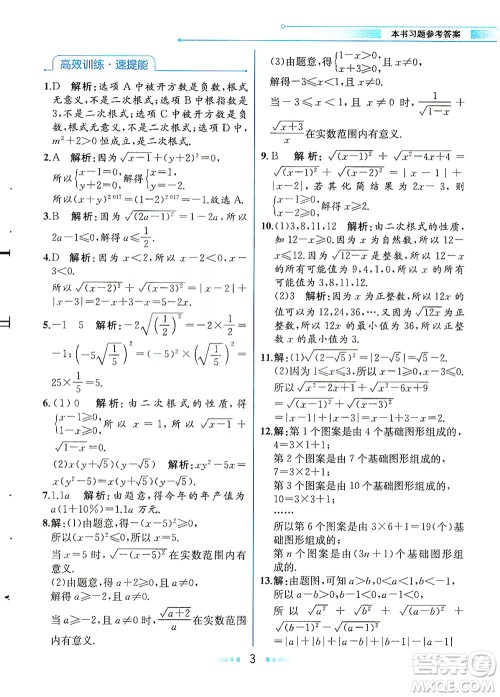 本书习题参考答案
高效训练·速提能
1.D 解析:选项 A 中被开方数是负数,根式
无意义,不是二次根式;选项 B 中根指数是
3,不是二次根式;选项 C 中被开方数可能是
负数,根式无意义,不是二次根式;选项 D 中,
m²+2>0,根式有意义,是二次根式.
2.A 解析:因为√(x-1)+(y+1)^2 017=0,
所以{x-1=0, y+1=0, 解得{x=1, y=-1,
所以(x-1)^2 017+(y+1)^2 017=
3.B 解析:因为√(2a-1)²=1-2a,所以
2a-1≤0,所以a≤1/2.
4.D 解析:因为 x<2,所以 x-2<0,x-
3<0.
所以√(x-2)²+√(x-3)²=|x-2|+|x-
3|=2-x+3-x=5-2x.
5.-1 5 解析:
25×1/5=5.
6.(1)0 解析:由二次根式的性质,得
{x-1≥0, 1-x≥0, 所以 x=1,所以√(x-1)+
√(1-x)=0.
(2)x(y+√5)(y-√5) 解析:xy²-5x=
x(y²-5)=x(y+√5)(y-√5).
7.1.1a 解析:由题意,得今年的年产值为
a(1+10%)=1.1a(万元).
8.解:(1)由题意,得-(x-5)²≥0,
所以(x-5)²≤0,所以 x=5.
当 x=5 时,√(-(x-5)²)在实数范围内有意义.
(2)由题意,得{a+2≥0, a≠0.
解得 a≥-2,且 a≠0.
当 a≥-2,且 a≠0 时,√(a+2)/a 在实数范围内
有意义.
(3)由题意,得{1-x>0, x+3≥0.
解得-3≤x<1.
当-3≤x<1 时,1/√(1-x)+
√(x+3)/π在实数范围内有意义.
9.B 解析:√(x-1)²+√(x²-4x+4)=
√(x-1)²+√(x-2)²=|x-1|+
|x-2|,若其化简结果为 2x-3,则
{x-1≥0, x-2≥0, 解得 x≥2.
10.(1)3,8,11,12 解析:由二次根式的性质,
知 12-x≥0.因为 x 为自然数,所以
12-x 的值可能为 0,1,4,9,所以自然数 x
的所有可能值为 3,8,11,12.
(2)3 解析:因为 x 为正整数,√12x 为正
整数,所以 12x 的最小值为 36,所以正整
数 x 的最小值为 3.
11.解:(1)√(x²-2x+1)=√(x-1)²=|x-1|.
(2)因为 1≤x≤3,所以 x-1≥0,x-3≤0.
所以√(x²-2x+1)+√(x²-6x+9)
=√(x-1)²+√(x-3)²
=|x-1|+|x-3|=x-1+3-x=2.
12.解:
第 1 个图案是由 4 个基础图形组成的,
4=3×1+1;
第 2 个图案是由 7 个基础图形组成的,
7=3×2+1;
第 3 个图案是由 10 个基础图形组成的,
10=3×3+1;
……
所以第 n 个图案是由(3n+1)个基础图形
组成的.
13.解:由题图可知 a>b,0<a<1,b<-1,所以
a-b>0,
所以√a²+√b²-√(a-b)²=|a|+|b|-
3